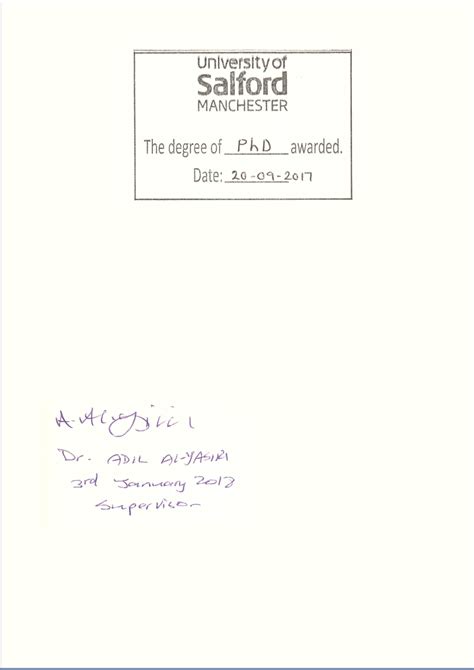 University of
Salford
MANCHESTER
The degree of PhD awarded.
Date: 20-09-2017
A. Alyasiri
Dr. ADIL AL-YASIRI
3rd January 2018
Supervisor